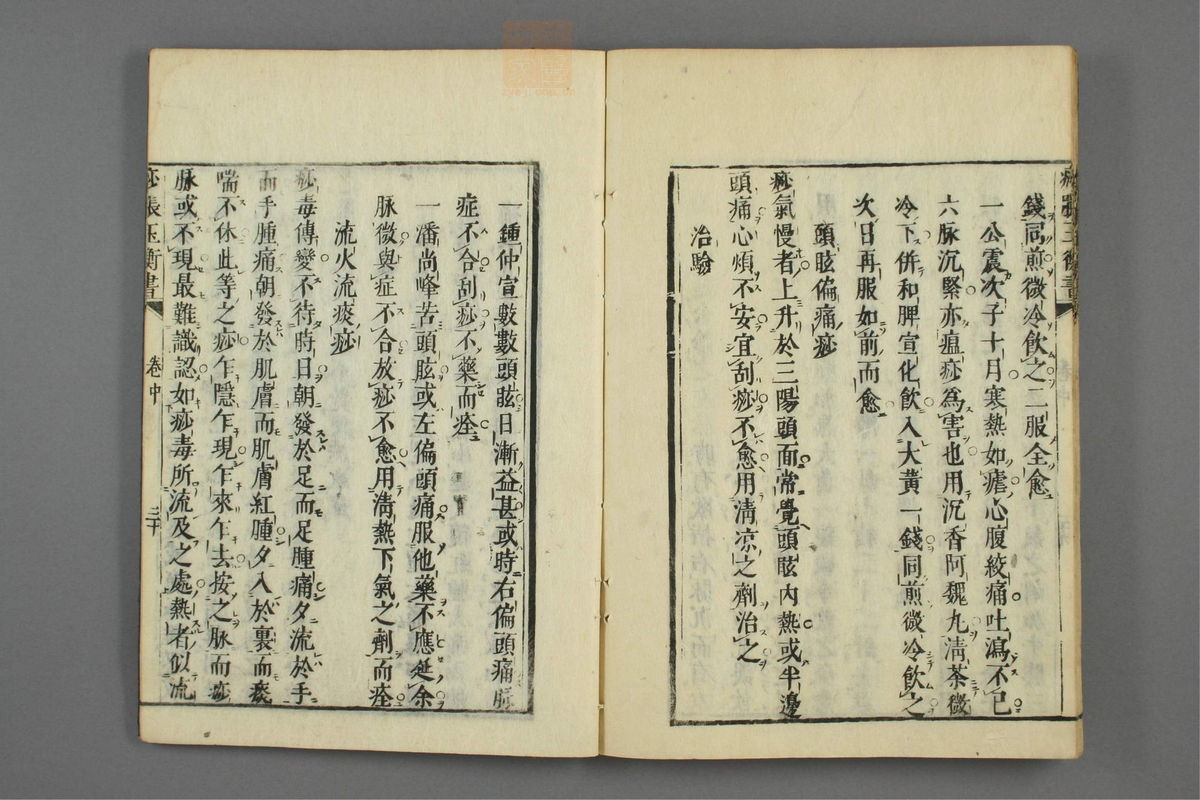 痧脹玉衡書
錢同煎微冷飲之二服全愈
一公震次子十月寒熱如瘧心腹絞痛吐瀉不已
六脉沉緊亦瘟痧為害也用沉香阿魏丸清茶微
冷下併和脾宣化飲入大黃一錢同煎微冷飲之
次日再服如前而愈
頭眩偏痛痧
痧氣慢者上升於三陽頭面常覺頭眩內熱或半邊
頭痛心煩不安宜刮痧不愈用清凉之劑治之
治驗
一鍾仲宣數數頭眩日漸益甚或時右偏頭痛脉
症不合刮痧不藥而痊
一潘尚峰苦頭眩或左偏頭痛服他藥不應延余
脉微與症不合放痧不愈用清熱下氣之劑而痊
流火流痰痧
痧毒傳變不待時日朝發於足而足腫痛夕流於手
而手腫痛朝發於肌膚而肌膚紅腫夕入於裏而痰
喘不休此等之痧乍隱乍現乍來乍去按之脉而痧
脉或不現最難識認如痧毒所流及之處熱者似流
痧脹玉衡書 卷中 三十